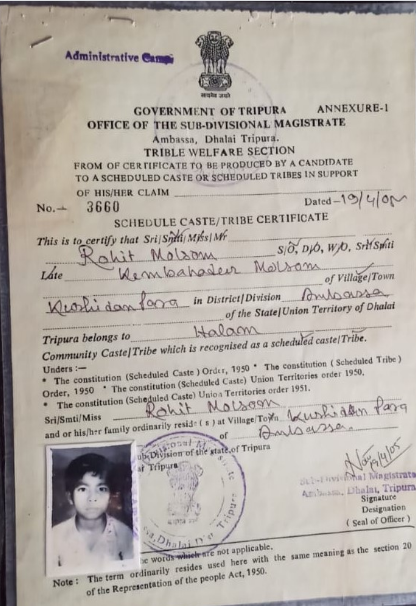 Administrative Camp
सत्यमेव जयते
GOVERNMENT OF TRIPURA ANNEXURE-1
OFFICE OF THE SUB-DIVISIONAL MAGISTRATE
Ambassa, Dhalai Tripura.
TRIBLE WELFARE SECTION
FROM OF CERTIFICATE TO BE PRODUCED BY A CANDIDATE
TO A SCHEDULED CASTE OR SCHEDULED TRIBES IN SUPPORT
OF HIS/HER CLAIM
No.- 3660 Dated -19/4/05
SCHEDULE CASTE/TRIBE CERTIFICATE
This is to certify that Sri/Smti/Miss/Mr
Rohit Molsom S/O, D/O, W/O, Sri/Smti
Late Kembahadur Molsom of Village/Town
Kushidanpara in District/Division Ambassa
of the State/Union Territory of Dhalai
Tripura belongs to Halam
Community Caste/Tribe which is recognised as a scheduled caste/Tribe.
Unders :—
* The constitution (Scheduled Caste) Order, 1950 * The constitution (Scheduled Tribe)
Order, 1950 * The constitution (Scheduled Caste) Union Territories order 1950.
* The constitution (Scheduled Caste) Union Territories order 1951.
Sri/Smti/Miss Rohit Molsom
and or his/her family ordinarily resid (s) at Village/Town Kushidanpara
of Ambassa.
Sub, Division of the state, of Tripura
Tripura
19/4/05
Sub-Divisional Magistrate
Ambassa, Dhalai, Tripura
Signature
Designation
( Seal of Officer )
be words which are not applicable.
Note : The term ordinarily resides used here with the same meaning as the section 20
of the Representation of the people Act, 1950.